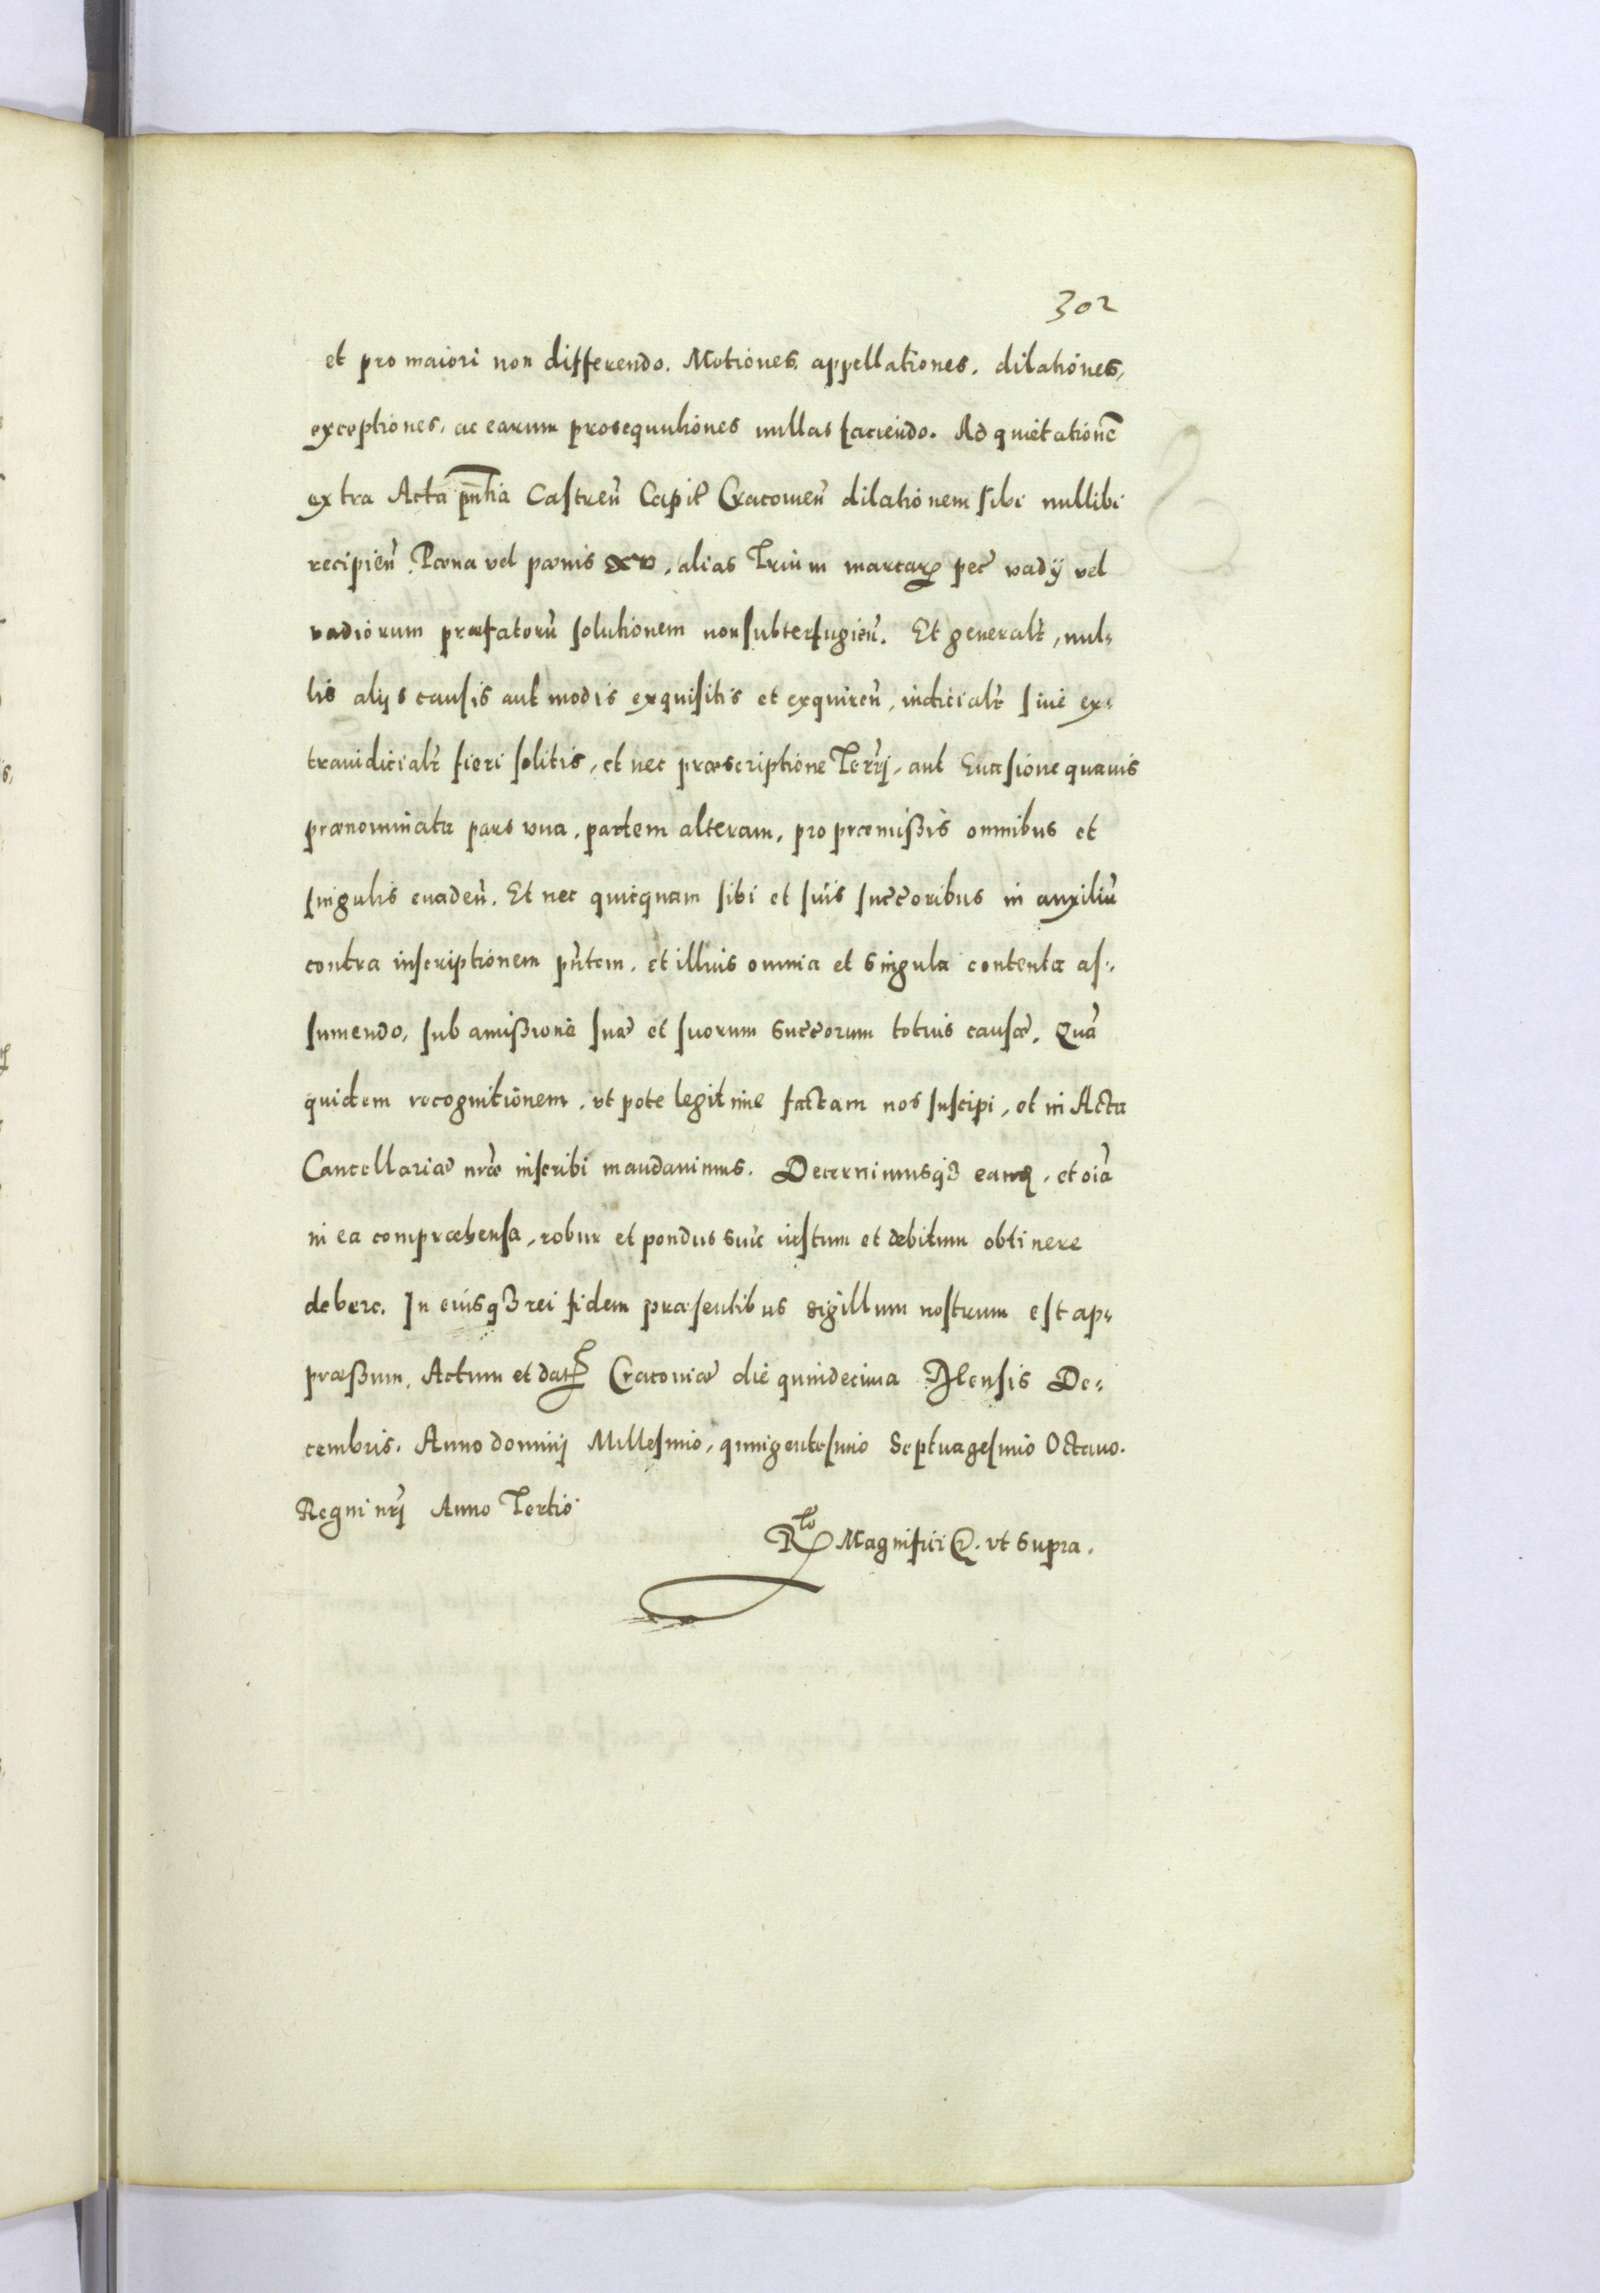 302
et pro maiori non differendo. Motiones, appellationes, dilationes,
exceptiones, ac earum prosequutiones nullas faciendo. Ad quietationē
extra Acta pn̄tia Castreñ Capitł Cracouieñ dilationem sibi nullibi
recipieñ. Pœna vel pœnis XV, alias Trium marcarꝝ pec̃ vadij vel
vadiorum præfatorũ solutionem non subterfugieñ. Et generalr̃, nul-
lis alijs causis aut modis exquisitis et exquireñ, iudicialr̃ siue ex-
traiudicialr̃ fieri solitis, et nec præscriptione Terr̃j, aut Euasione quauis
prænominata pars vna, partem alteram, pro præmißis omnibus et
singulis euadeñ. Et nec quicquam sibi et suis succ̃oribus in auxiliũ
contra inscriptionem pñtem, et illius omnia et singula contenta as-
sumendo, sub amißione suæ et suorum succ̃orum totius causæ. Quã
quidem recognitionem, vt pote legitime factam nos suscipi, et in Acta
Cancellariæ nr̃æ inscribi mandauimus. Decernimusqꝫ eam, et oĩa
in ea compræhensa, robur et pondus suũ iustum et debitum obtinere
debere. In cuiusqꝫ rei fidem præsentibus sigillum nostrum est ap-
præßum. Actum et datꝝ Cracouiæ die quindecima Mensis De-
cembris. Anno dominj Millesimo, quingentesimo Septuagesimo Octauo.
Regni nr̃j Anno Tertio
Rlo Magnifici &. vt supra.